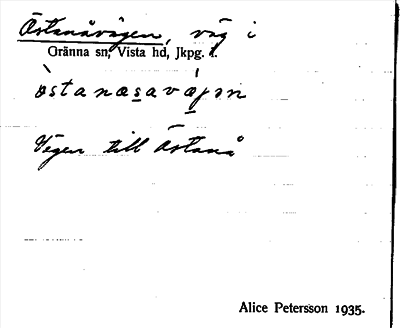 Östanåvägen, väg i
Gränna sn, Vista hd, Jkpg. l.
östanæsavæjən
Vägen till Östanå
Alice Petersson 1935.